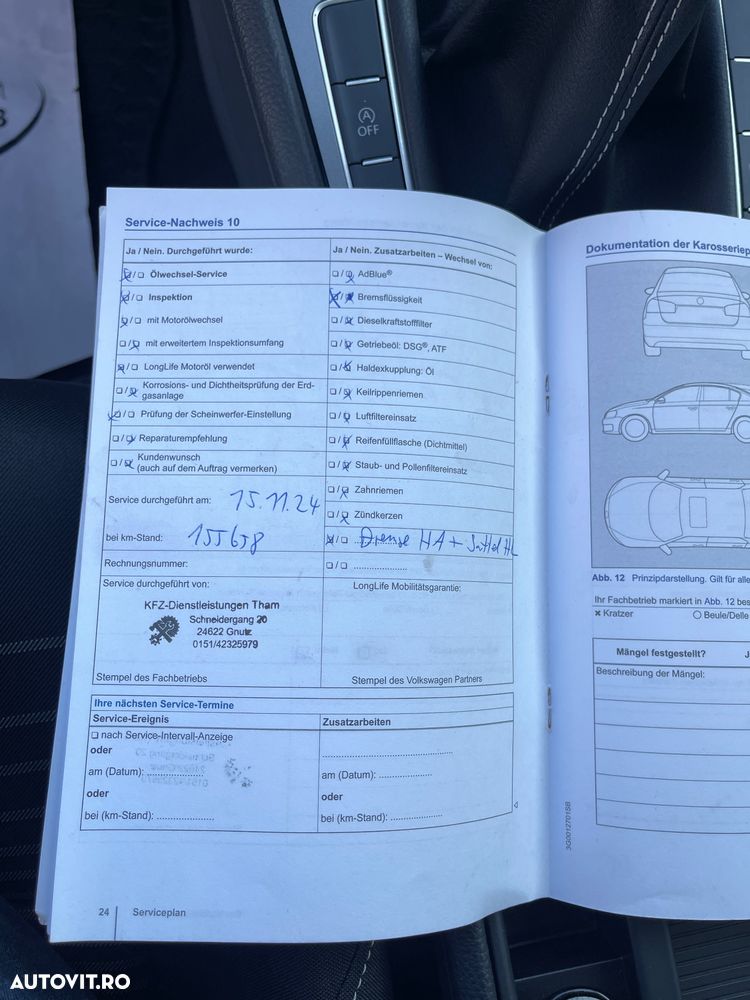 OFF
Service-Nachweis 10
Ja / Nein. Durchgeführt wurde:
Ölwechsel-Service
Inspektion
mit Motorölwechsel
mit erweitertem Inspektionsumfang
LongLife Motoröl verwendet
Korrosions- und Dichtheitsprüfung der Erd-
gasanlage
Prüfung der Scheinwerfer-Einstellung
Reparaturempfehlung
Kundenwunsch
(auch auf dem Auftrag vermerken)
Service durchgeführt am: 15.11.24
bei km-Stand: 155658
Rechnungsnummer:
Service durchgeführt von:
KFZ-Dienstleistungen Tham
Schneidergang 20
24622 Gnutz
0151/42325979
Stempel des Fachbetriebs
Ja / Nein. Zusatzarbeiten – Wechsel von:
AdBlue®
Bremsflüssigkeit
Dieselkraftstofffilter
Getriebeöl: DSG®, ATF
Haldexkupplung: Öl
Keilrippenriemen
Luftfiltereinsatz
Reifenfüllflasche (Dichtmittel)
Staub- und Pollenfiltereinsatz
Zahnriemen
Zündkerzen
HA +
LongLife Mobilitätsgarantie:
Stempel des Volkswagen Partners
Ihre nächsten Service-Termine
Service-Ereignis
nach Service-Intervall-Anzeige
oder
am (Datum):
oder
bei (km-Stand):
Zusatzarbeiten
am (Datum):
oder
bei (km-Stand):
24 Serviceplan
Dokumentation der Karosseriep
Abb. 12 Prinzipdarstellung. Gilt für alle
Ihr Fachbetrieb markiert in Abb. 12 bes
Kratzer
Beule/Delle
Mängel festgestellt? J
Beschreibung der Mängel:
3G0012701SB
AUTOVIT.RO